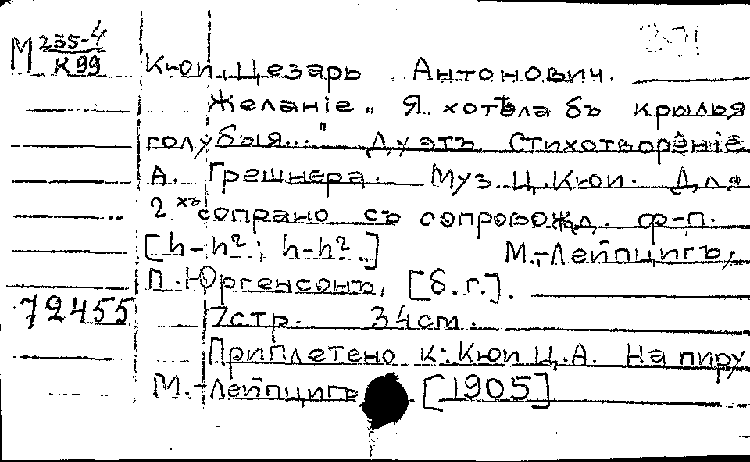 М 235-4
К 99
Кюи, Цезарь Антонович.
Желаніе. "Я хотѣла бъ крылья
голубыя..." Дуэтъ. Стихотвореніе
А. Грешнера. Муз. Ц. Кюи. Для
2 хъ сопрано съ сопровожд. ф-п.
[h-h²; h-h².] М.-Лейпцигъ,
П. Юргенсонъ, [б. г.].
72455 7 стр. 34 cm.
Приплетено к: Кюи Ц.А. На пиру
М.-Лейпцигъ [1905]